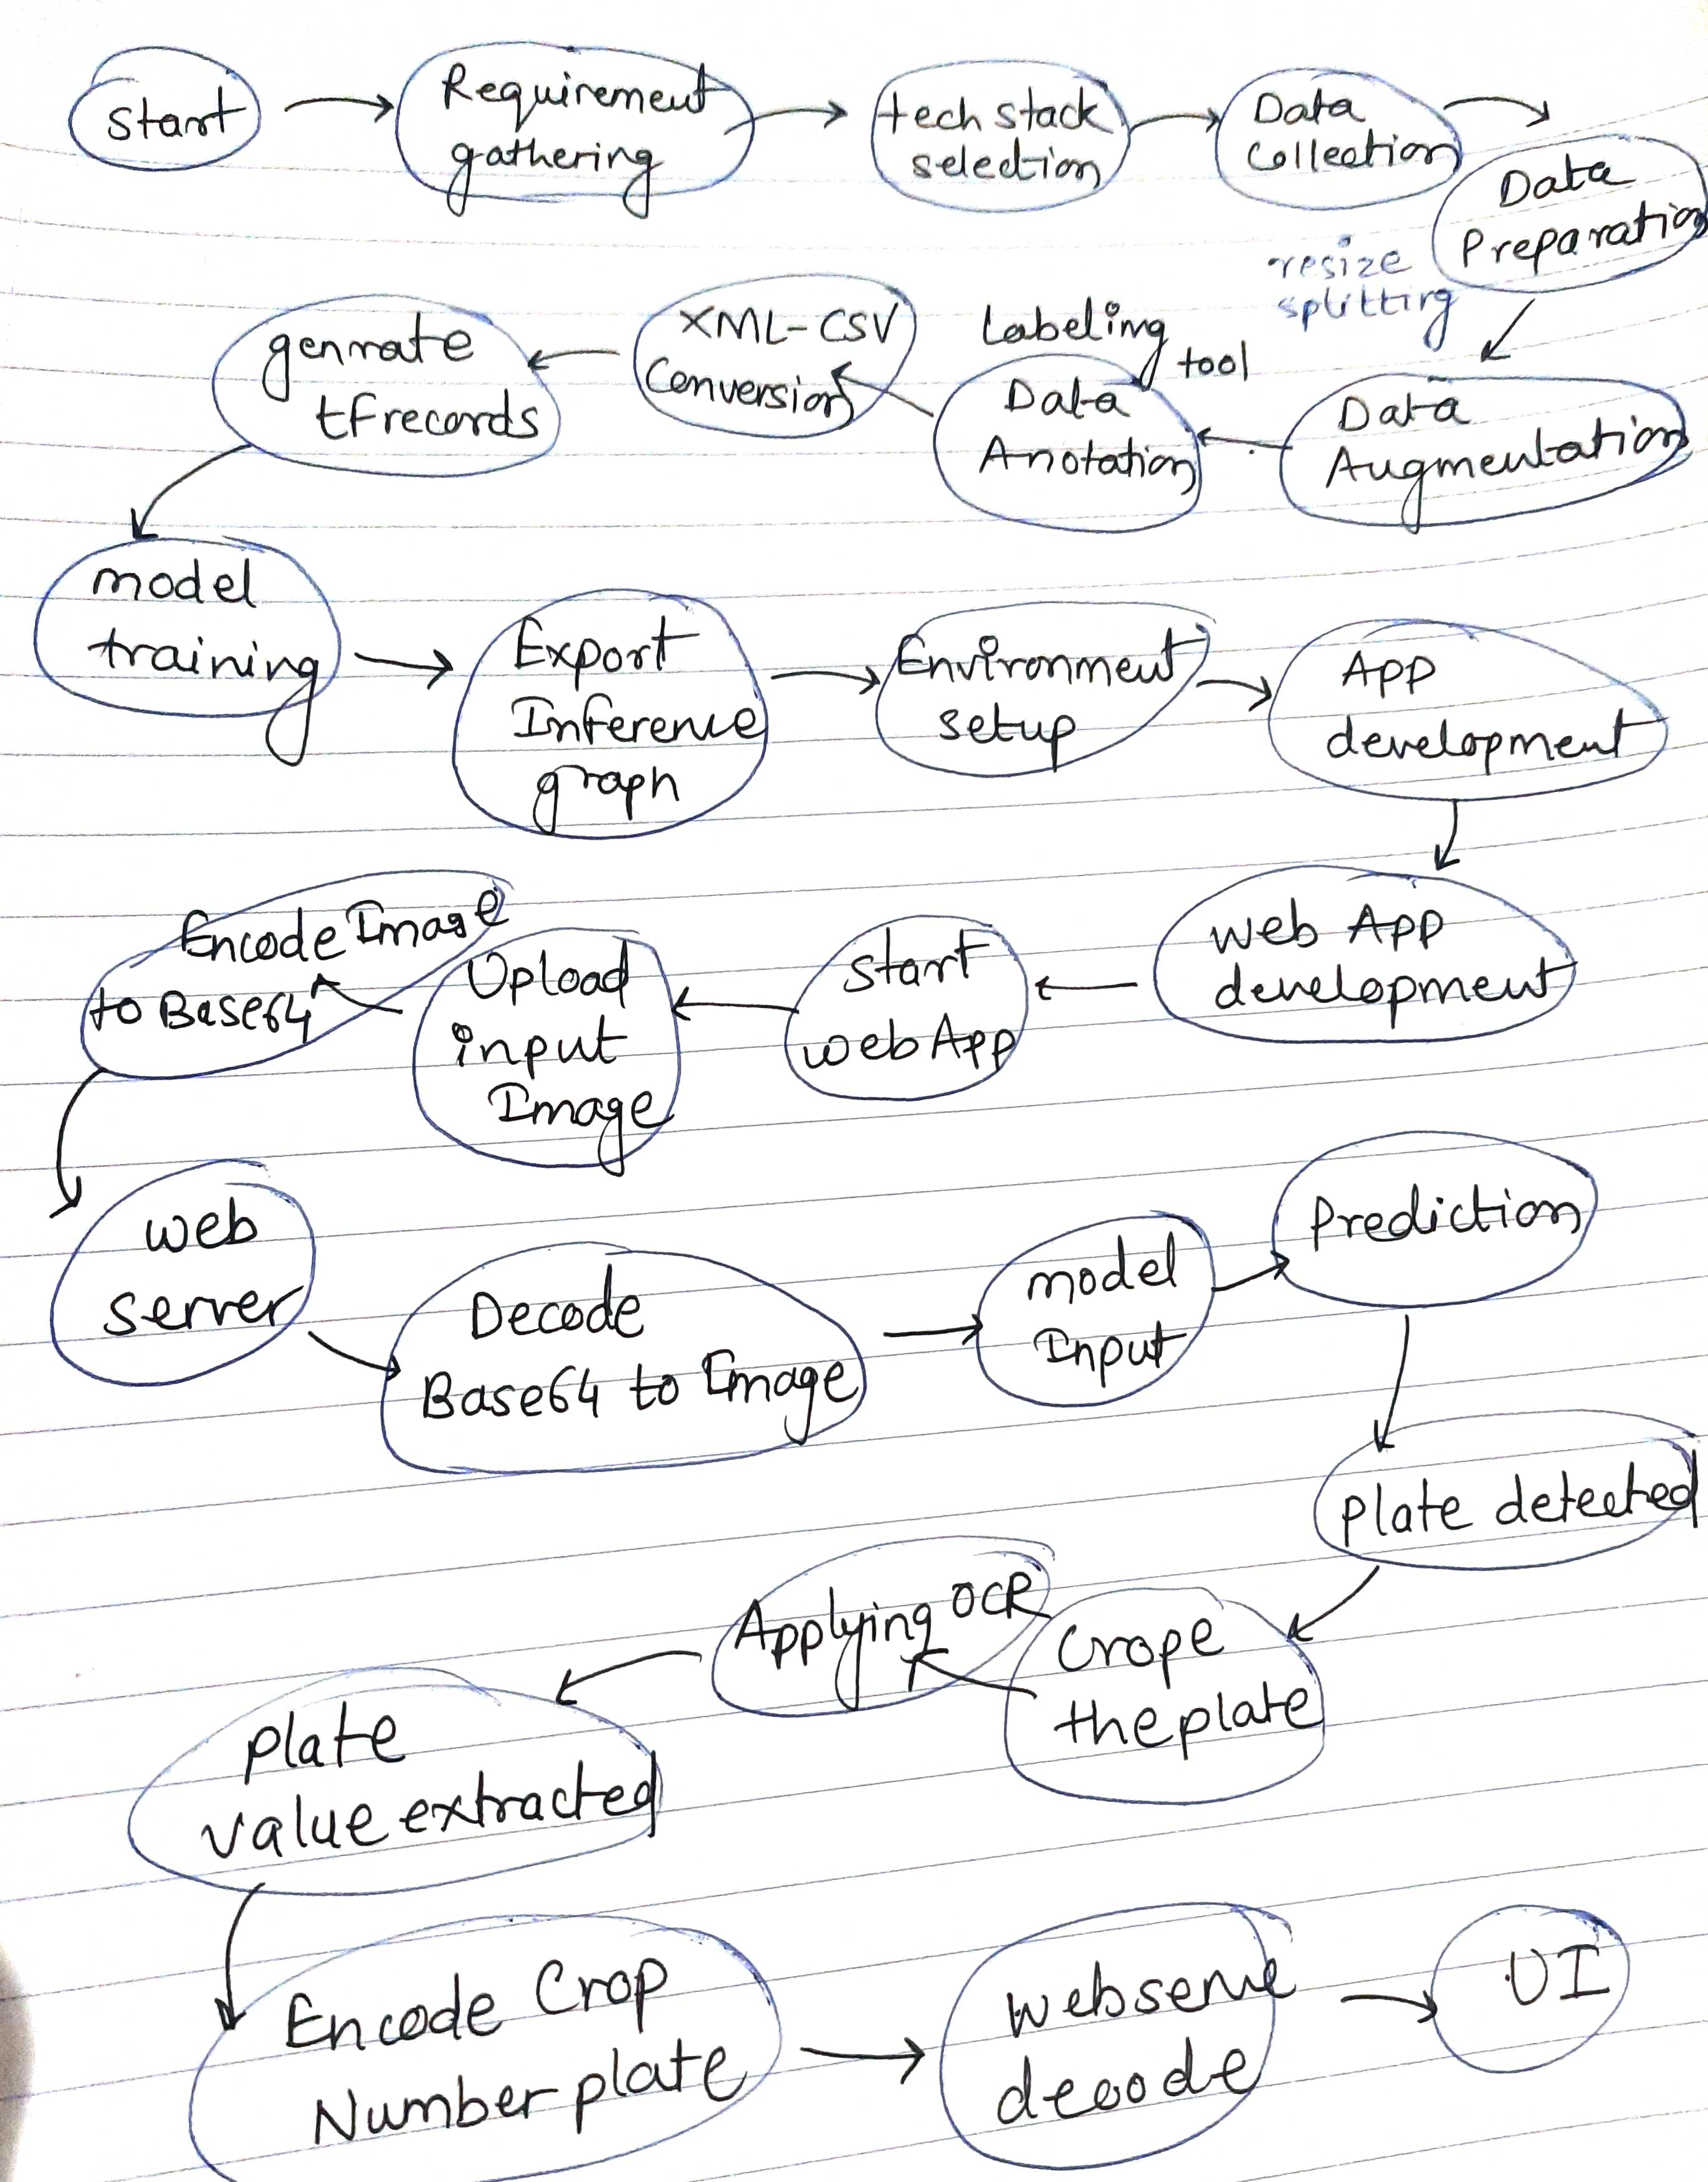 start
Requirement
gathering
tech stack
selection
Data
Collection
Data
Preparation
resize
splitting
Data
Augmentation
Labeling
tool
Data
Anotation
XML-CSV
Conversion
gennate
tfrecords
model
training
Export
Inference
graph
Environment
setup
App
development
web App
development
start
web App
Upload
input
Image
Encode Image
to Base64
web
server
Decode
Base64 to Image
model
Input
Prediction
plate detected
Crope
the plate
Applying OCR
plate
value extracted
Encode Crop
Number plate
webserve
decode
UI